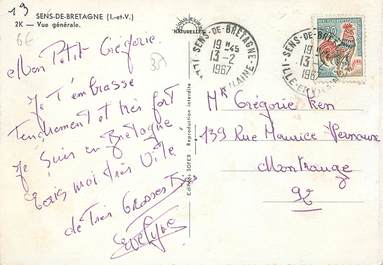 19
SENS-DE-BRETAGNE (I.-et-V.)
2K – Vue générale.
6E
Mon Petit Grégorie
Je t'embrasse
Tendrement et très fort
Je suis en Bretagne
Ecris moi très Vite
de Très Grosses Bises
Evelyne
NATURELLES
Reproduction interdite
Editions SOFER
SENS-DE-BRETAGNE
19 H45
13-2
1967
ILLE-ET-VILAINE
SENS-DE-BRETAGNE
19 H45
13-2
1967
ILLE-ET-VILAINE
Mr Grégorie Ken
139 Rue Maurice Vernaux
Montrouge
92